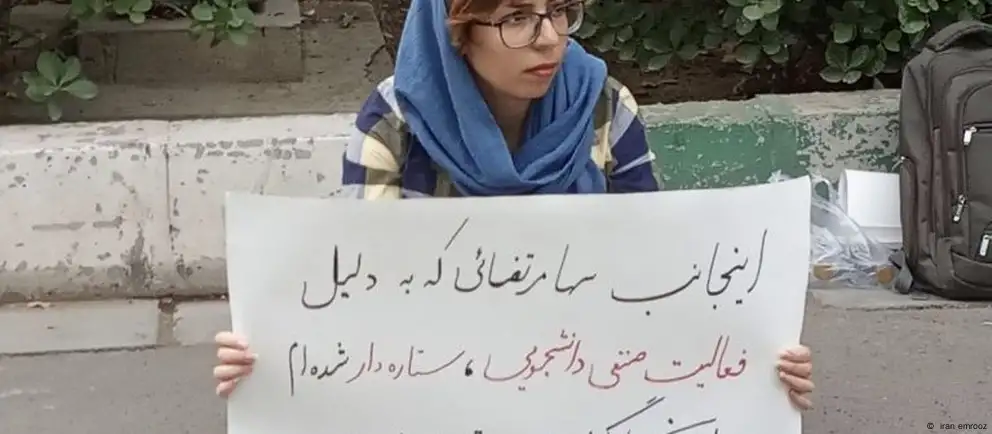 اینجانب سها مرتضائی که به دلیل
فعالیت صنفی دانشجویی، ستاره دار شده ام
© iran emrooz